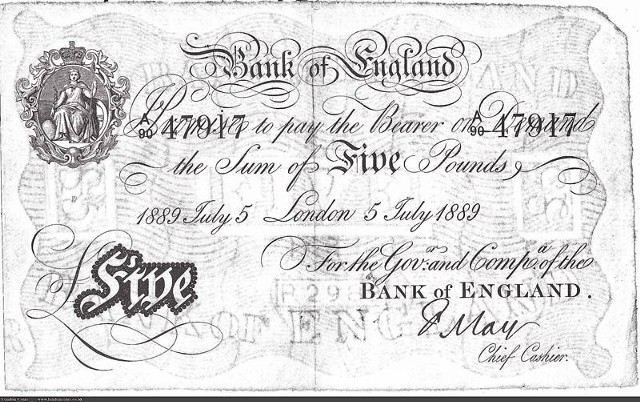 Bank of England
I Promise to pay the Bearer on Demand
A/90 47917 A/90 47917
the Sum of Five Pounds
1889 July 5 London 5 July 1889
For the Gov.r and Comp.a of the
BANK of ENGLAND.
Five
F May
Chief Cashier.